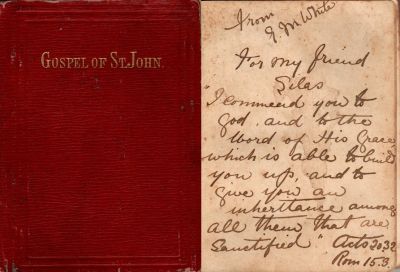 GOSPEL OF ST. JOHN.
From
E. M. White
For my friend
Silas
"I commend you to
God, and to the
Word of His Grace,
which is able to build
you up, and to
give you an
inheritance among
all them that are
Sanctified" Acts 20 32
Rom 15.3.